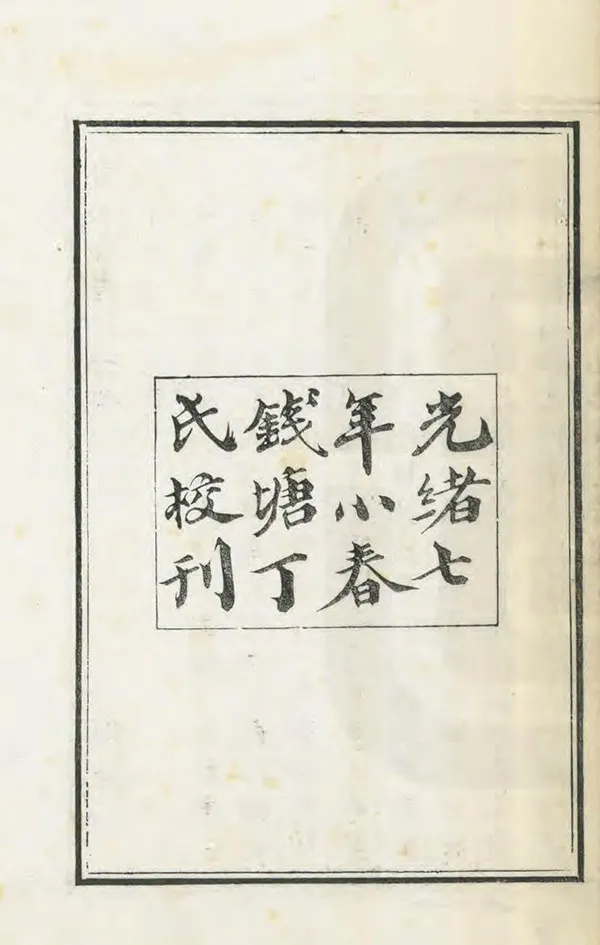 光緒七
年小春
錢塘丁
氏校刊